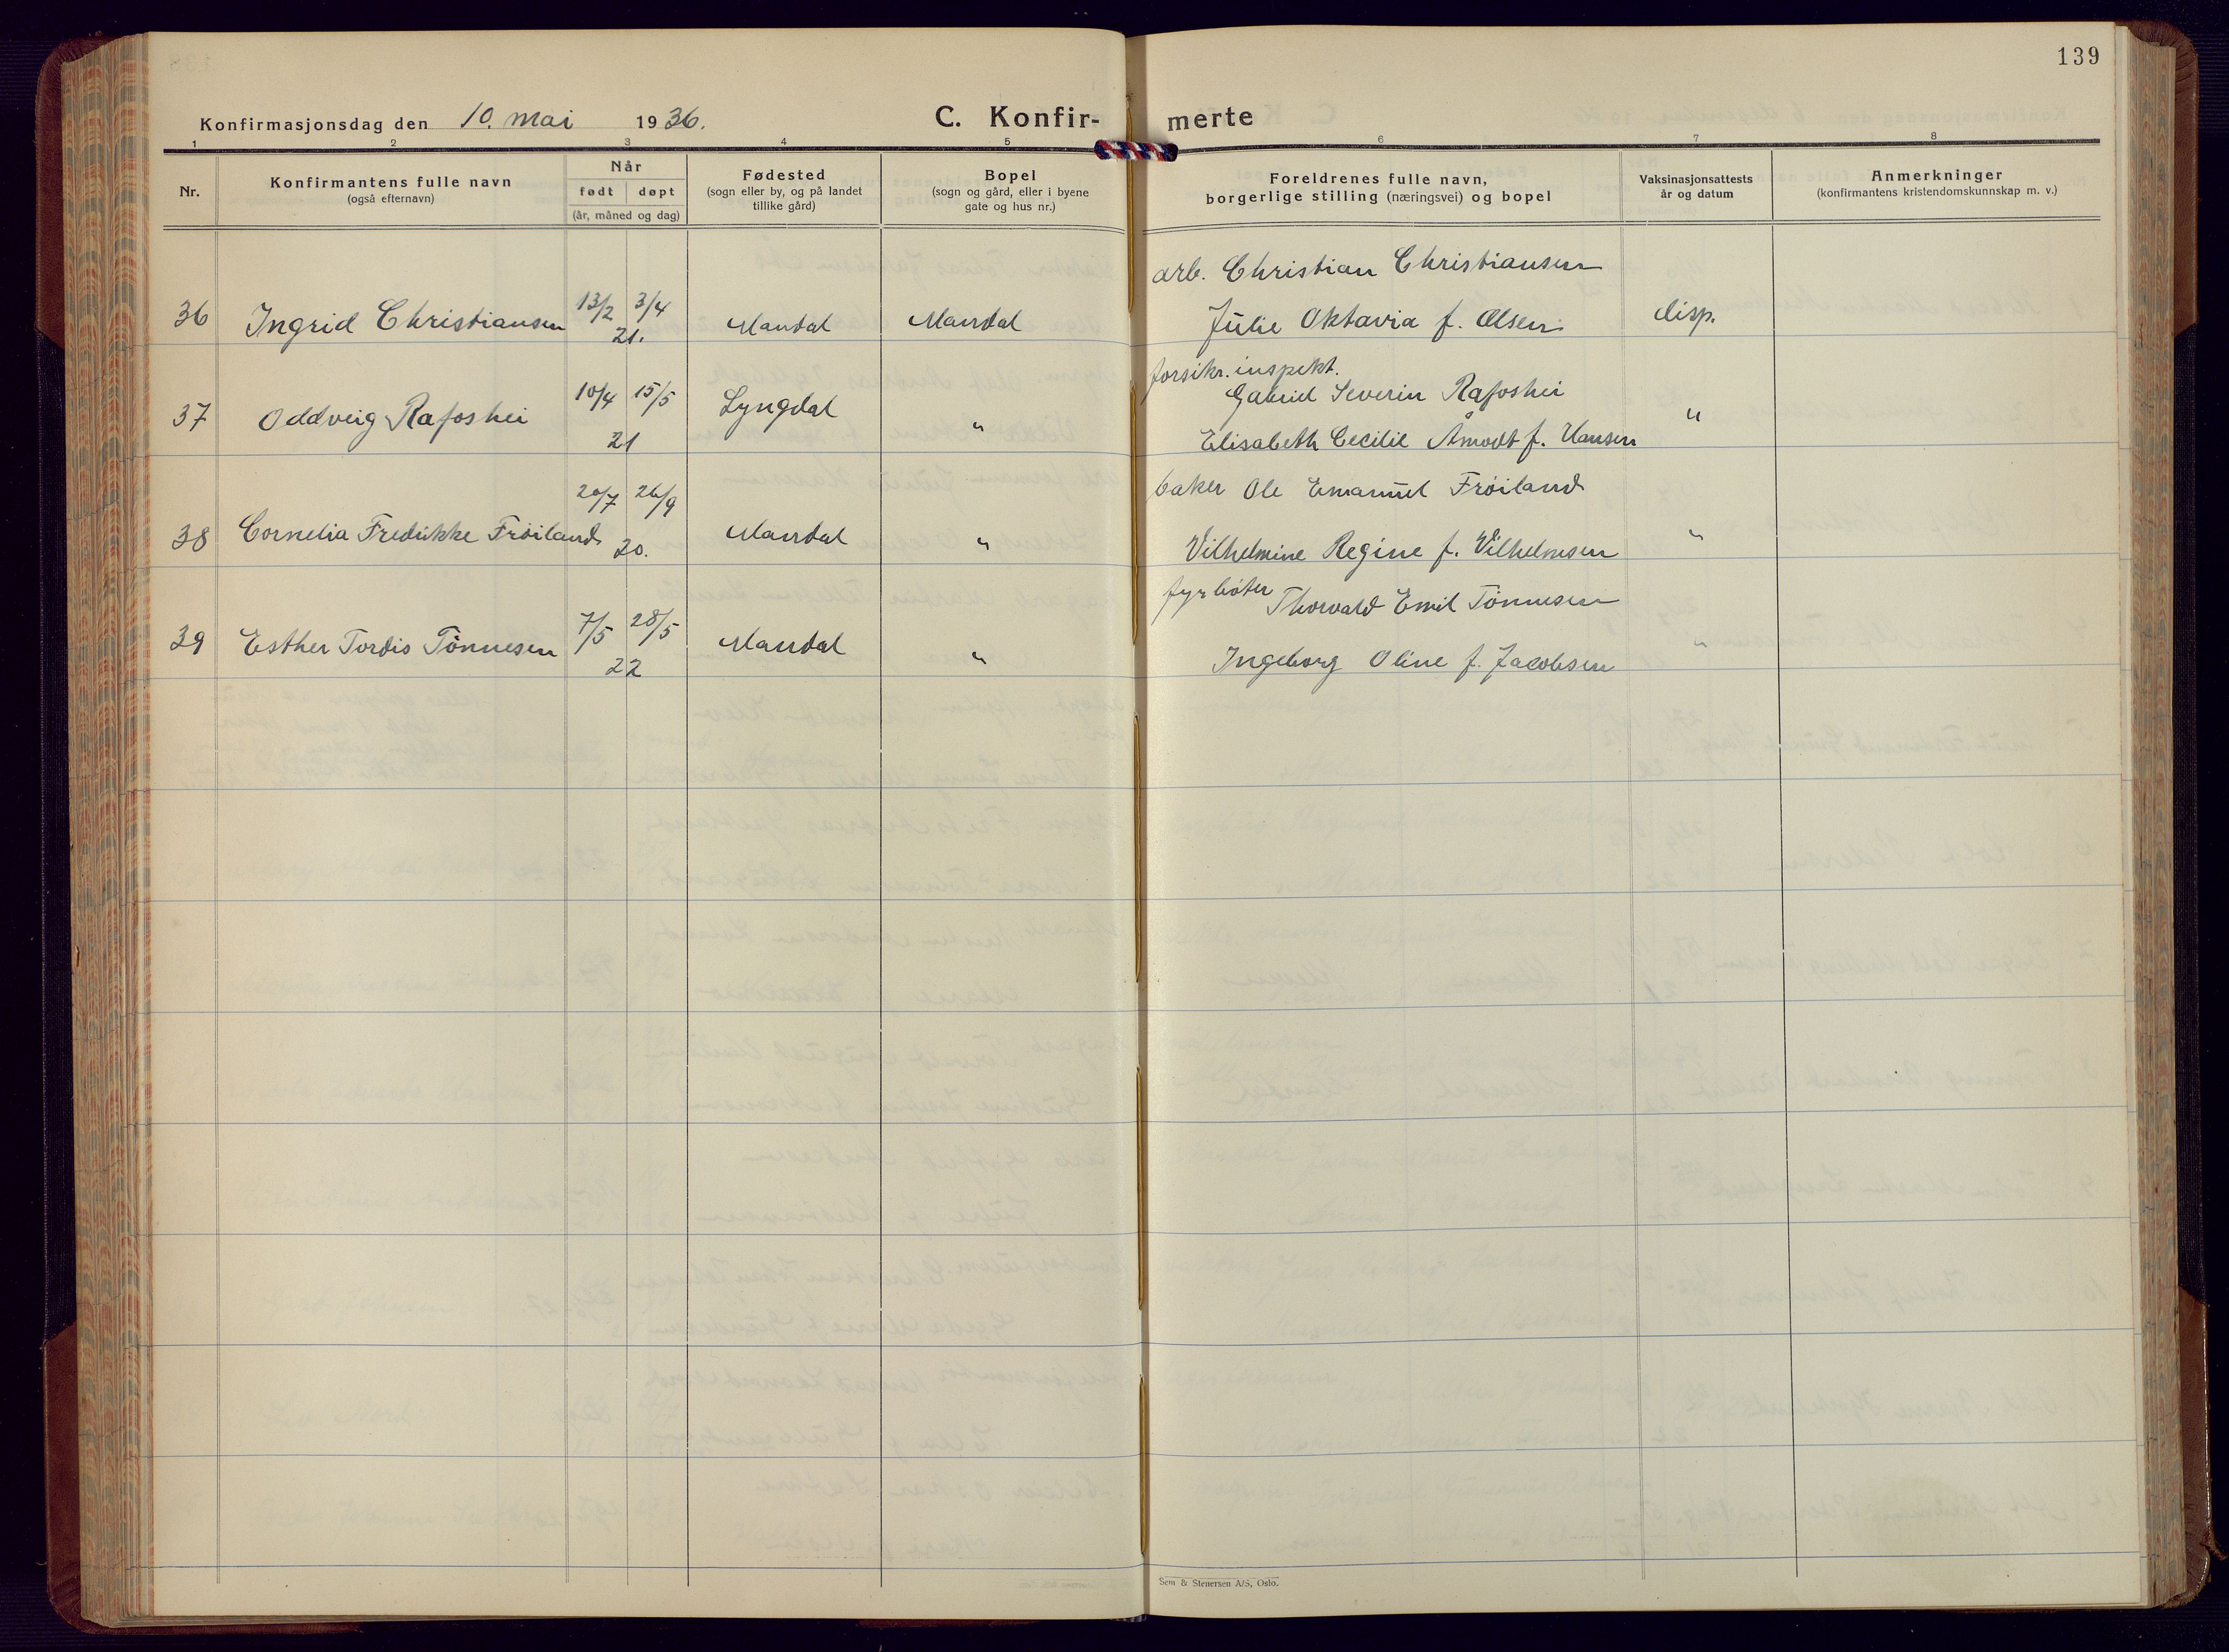 139
Konfirmasjonsdag den 10. mai 1936.
C. Konfir- merte
1 2 3 4 5 6 7 8
Nr.
Konfirmantens fulle navn
(også efternavn)
Når
født døpt
(år, måned og dag)
Fødested
(sogn eller by, og på landet
tillike gård)
Bopel
(sogn og gård, eller i byene
gate og hus nr.)
Foreldrenes fulle navn,
borgerlige stilling (næringsvei) og bopel
Vaksinasjonsattests
år og datum
Anmerkninger
(konfirmantens kristendomskunnskap m. v.)
arb. Christian Christiansen
36 Ingrid Christiansen 13/2 3/4 Mandal Mandal Julie Oktavia f. Olsen disp.
21.
forsikr. inspekt.
Gabriel Severin Rafoshei
37 Oddveig Rafoshei 10/4 15/5 Lyngdal " "
21 Elisabeth Cecilie Åmodt f. Hansen
20/7 26/9 baker Ole Emanuel Frøiland
38 Cornelia Fredrikke Frøiland 20. Mandal " Vilhelmine Regine f. Vilhelmsen "
fyrbøter Thorvald Emil Tønnesen
39 Esther Tordis Tønnesen 7/5 28/5 Mandal " Ingeborg Oline f. Jacobsen "
22
Sem & Stenersen A/S, Oslo.